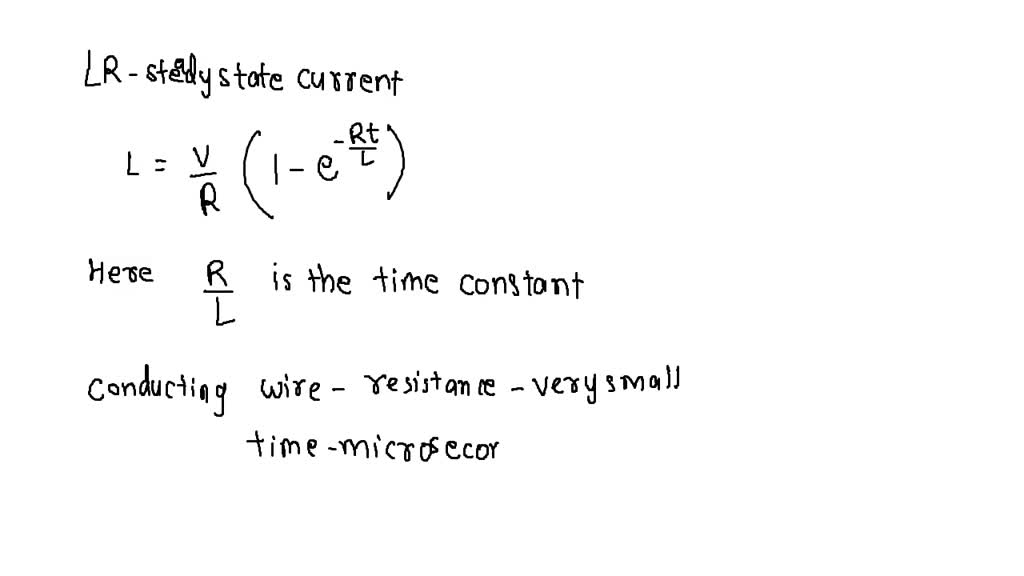 LR - steady state current
L = V/R (1 - e^(-Rt/L))
Here R/L is the time constant
conducting wire - resistance - very small
time - microsecon